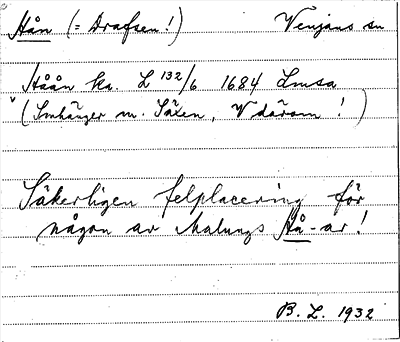 Hån (= Drafsen!) Venjans sn
Håån ka. L 132/6 1684 Lmsa
" (Smhänger m. Säxen, V därom!)
Säkerligen felplacering för
någon av Malungs Hå-ar!
B. L. 1932